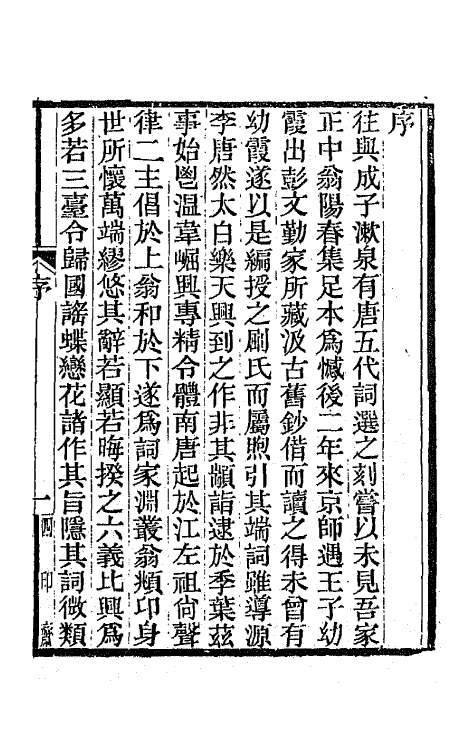 序
往與成子漱泉有唐五代詞選之刻嘗以未見吾家
正中翁陽春集足本爲憾後二年來京師遇王子幼
霞出彭文勤家所藏汲古舊鈔借而讀之得未曾有
幼霞遂以是編授之刷氏而屬煦引其端詞雖導源
李唐然太白樂天興到之作非其顓詣逮於季葉茲
事始鬯溫韋崛興專精令體南唐起於江左祖尙聲
律二主倡於上翁和於下遂爲詞家淵叢翁頫卬身
世所懷萬端繆悠其辭若顯若晦揆之六義比興爲
多若三臺令歸國謠蝶戀花諸作其旨隱其詞微類
序
一
四印齋